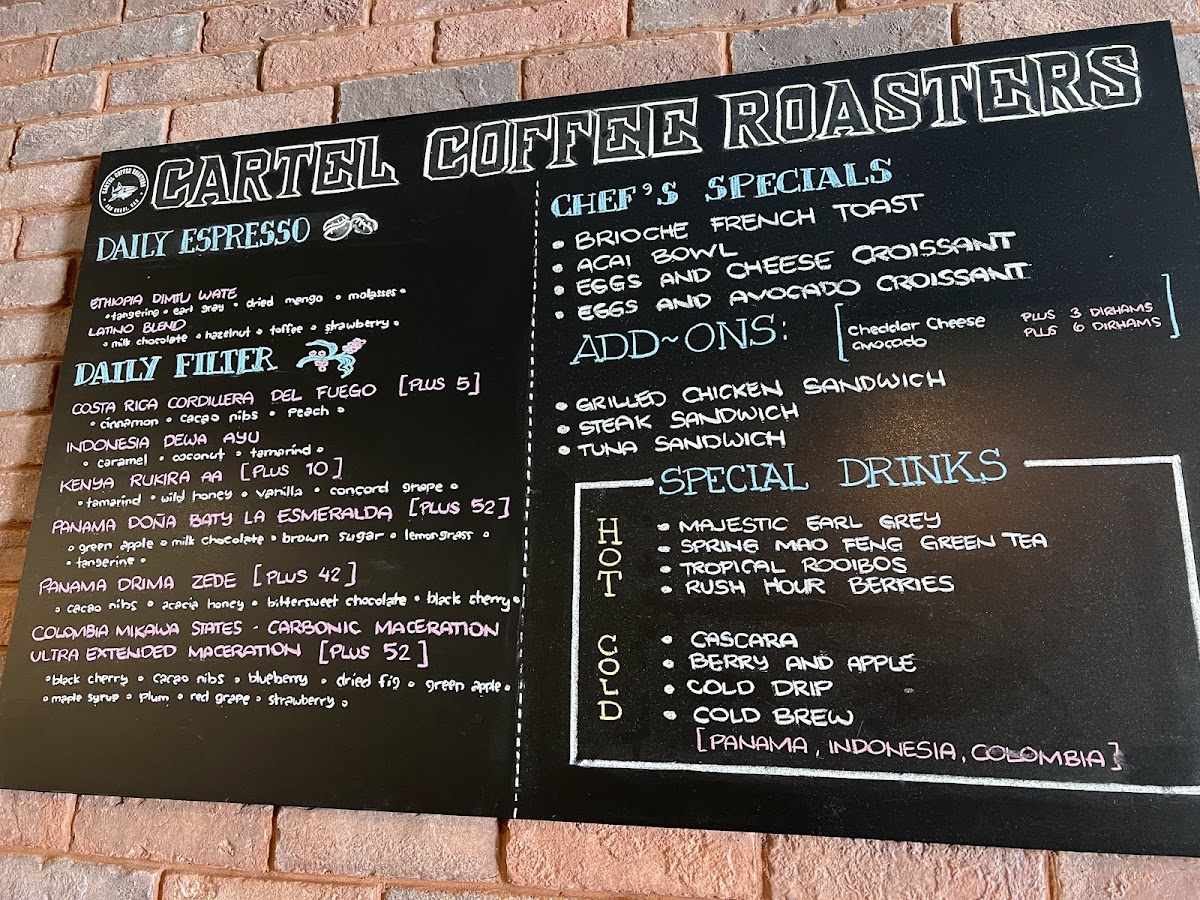 CARTEL COFFEE ROASTERS
DAILY ESPRESSO
ETHIOPIA DIMTU WATE
• tangerine • earl gray • dried mango • molasses •
LATINO BLEND
• milk chocolate • hazelnut • toffee • strawberry •
DAILY FILTER
COSTA RICA CORDILLERA DEL FUEGO [PLUS 5]
• cinnamon • cacao nibs • peach •
INDONESIA DEWA AYU
• caramel • coconut • tamarind •
KENYA RUKIRA AA [PLUS 10]
• tamarind • wild honey • vanilla • concord grape •
PANAMA DOÑA BATY LA ESMERALDA [PLUS 52]
• green apple • milk chocolate • brown sugar • lemongrass •
• tangerine •
PANAMA DRIMA ZEDE [PLUS 42]
• cacao nibs • acacia honey • bittersweet chocolate • black cherry •
COLOMBIA MIKAWA STATES - CARBONIC MACERATION
ULTRA EXTENDED MACERATION [PLUS 52]
• black cherry • cacao nibs • blueberry • dried fig • green apple •
• maple syrup • plum • red grape • strawberry •
CHEF'S SPECIALS
• BRIOCHE FRENCH TOAST
• ACAI BOWL
• EGGS AND CHEESE CROISSANT
• EGGS AND AVOCADO CROISSANT
ADD~ONS:
[Cheddar Cheese PLUS 3 DIRHAMS
avocado PLUS 6 DIRHAMS]
• GRILLED CHICKEN SANDWICH
• STEAK SANDWICH
• TUNA SANDWICH
SPECIAL DRINKS
HOT
• MAJESTIC EARL GREY
• SPRING MAO FENG GREEN TEA
• TROPICAL ROOIBOS
• RUSH HOUR BERRIES
COLD
• CASCARA
• BERRY AND APPLE
• COLD DRIP
• COLD BREW
[PANAMA, INDONESIA, COLOMBIA]